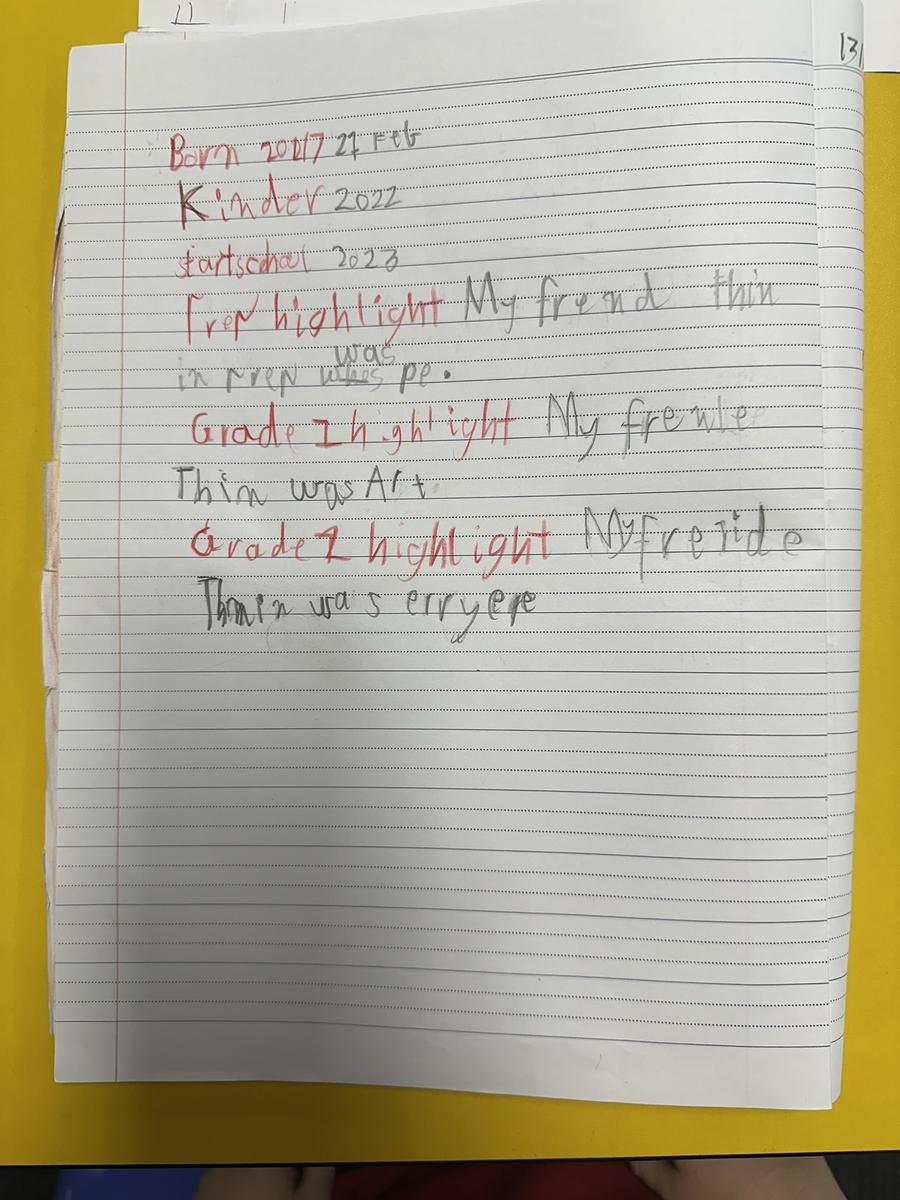 11
13
Born 2017 27 Feb
Kinder 2022
startschool 2023
Prep highlight My frend thin
was
in prep pe.
Grade 1 highlight My frewle
Thin was Art
Grade 2 highlight My freride
was erryere